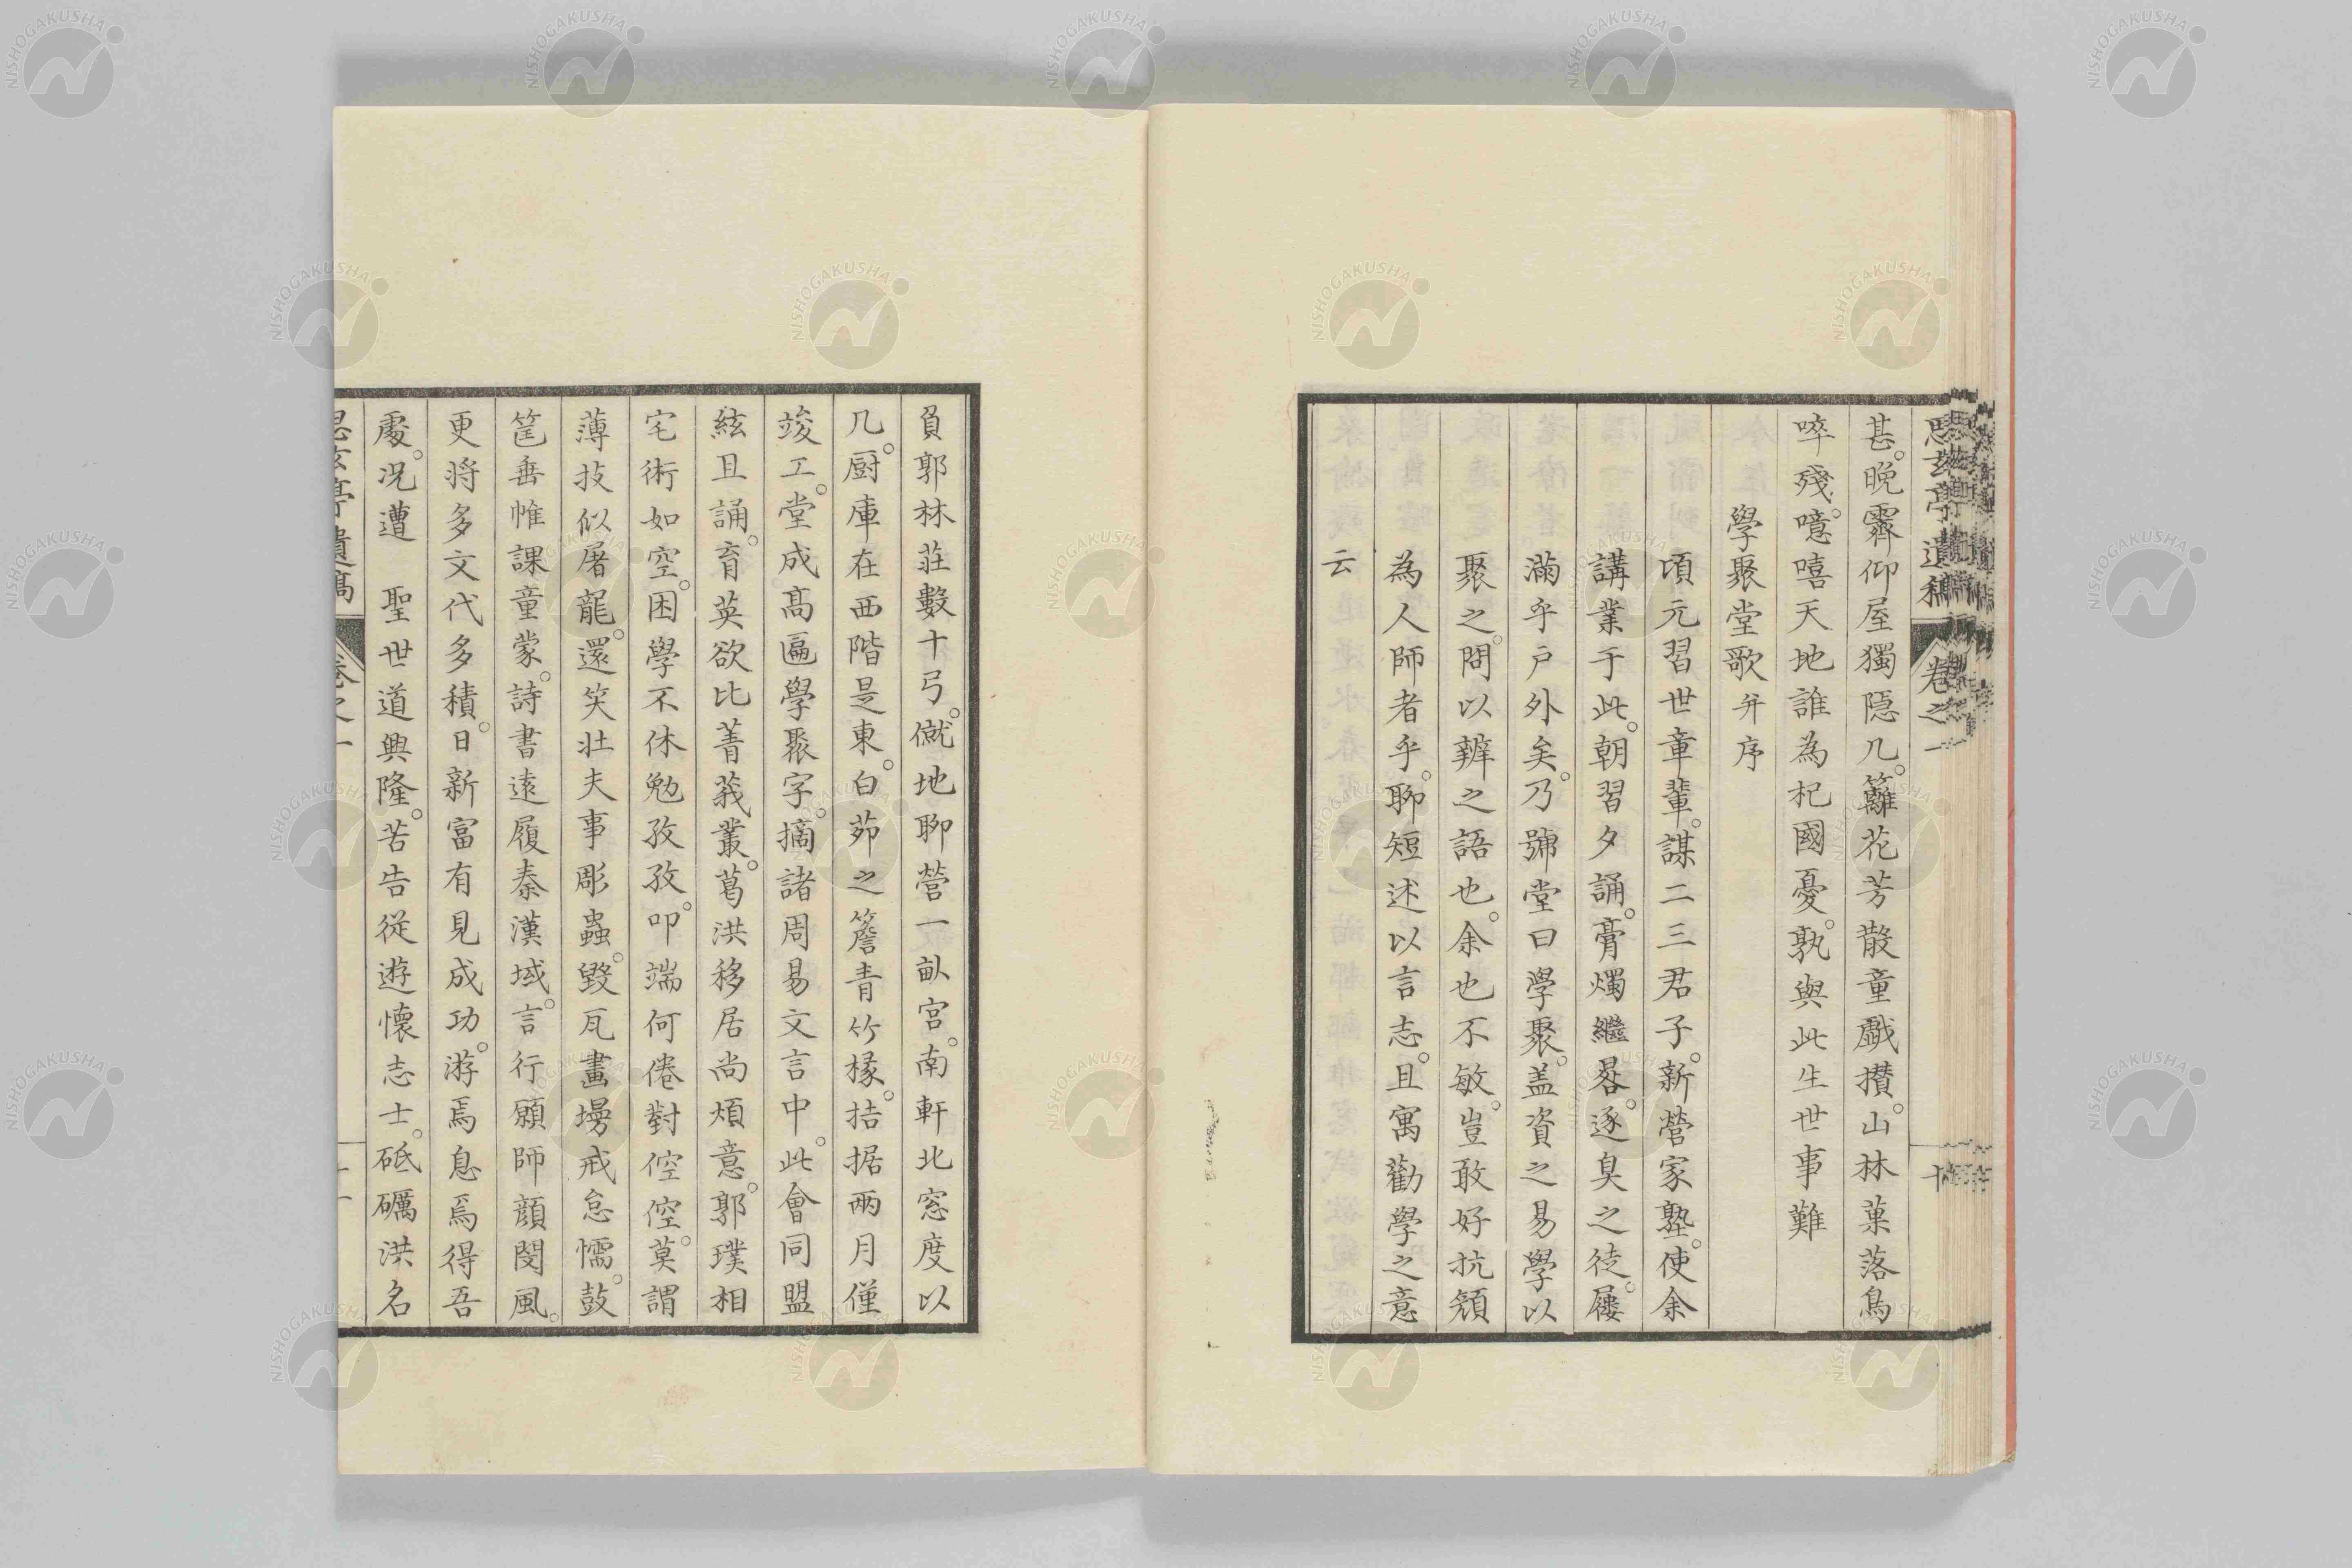 思玄亭遺稿 卷之一 十
甚。晩霽仰屋獨隱几。籬花芳散童戲攅。山林菓落鳥
啐殘。噫嘻天地誰為杞國憂。孰與此生世事難
學聚堂歌并序
頃元習世章輩。謀二三君子。新營家塾。使余
講業于此。朝習夕誦。膏燭繼晷。逐臭之徒。屨
滿乎戸外矣。乃號堂曰學聚。盖資之易學以
聚之。問以辨之語也。余也不敏。豈敢好抗顏
為人師者乎。聊短述以言志。且寓勸學之意
云
負郭林莊數十弓。僦地聊營一畝宮。南軒北窓度以
几。厨庫在西階是東。白茆之簷青竹椽。拮据兩月僅
竣工。堂成高匾學聚字。摘諸周易文言中。此會同盟
絃且誦。育英欲比菁莪叢。葛洪移居尚煩意。郭璞相
宅術如空。困學不休勉孜孜。叩端何倦對倥倥。莫謂
薄技似屠龍。還笑壯夫事彫蟲。毀瓦畫墁戒怠懦。鼓
篋垂帷課童蒙。詩書遠履秦漢域。言行願師顔閔風。
更將多文代多積。日新富有見成功。游焉息焉得吾
處。况遭 聖世道興隆。苦告從遊懷志士。砥礪洪名
思玄亭遺稿 卷之一
NISHOGAKUSHA